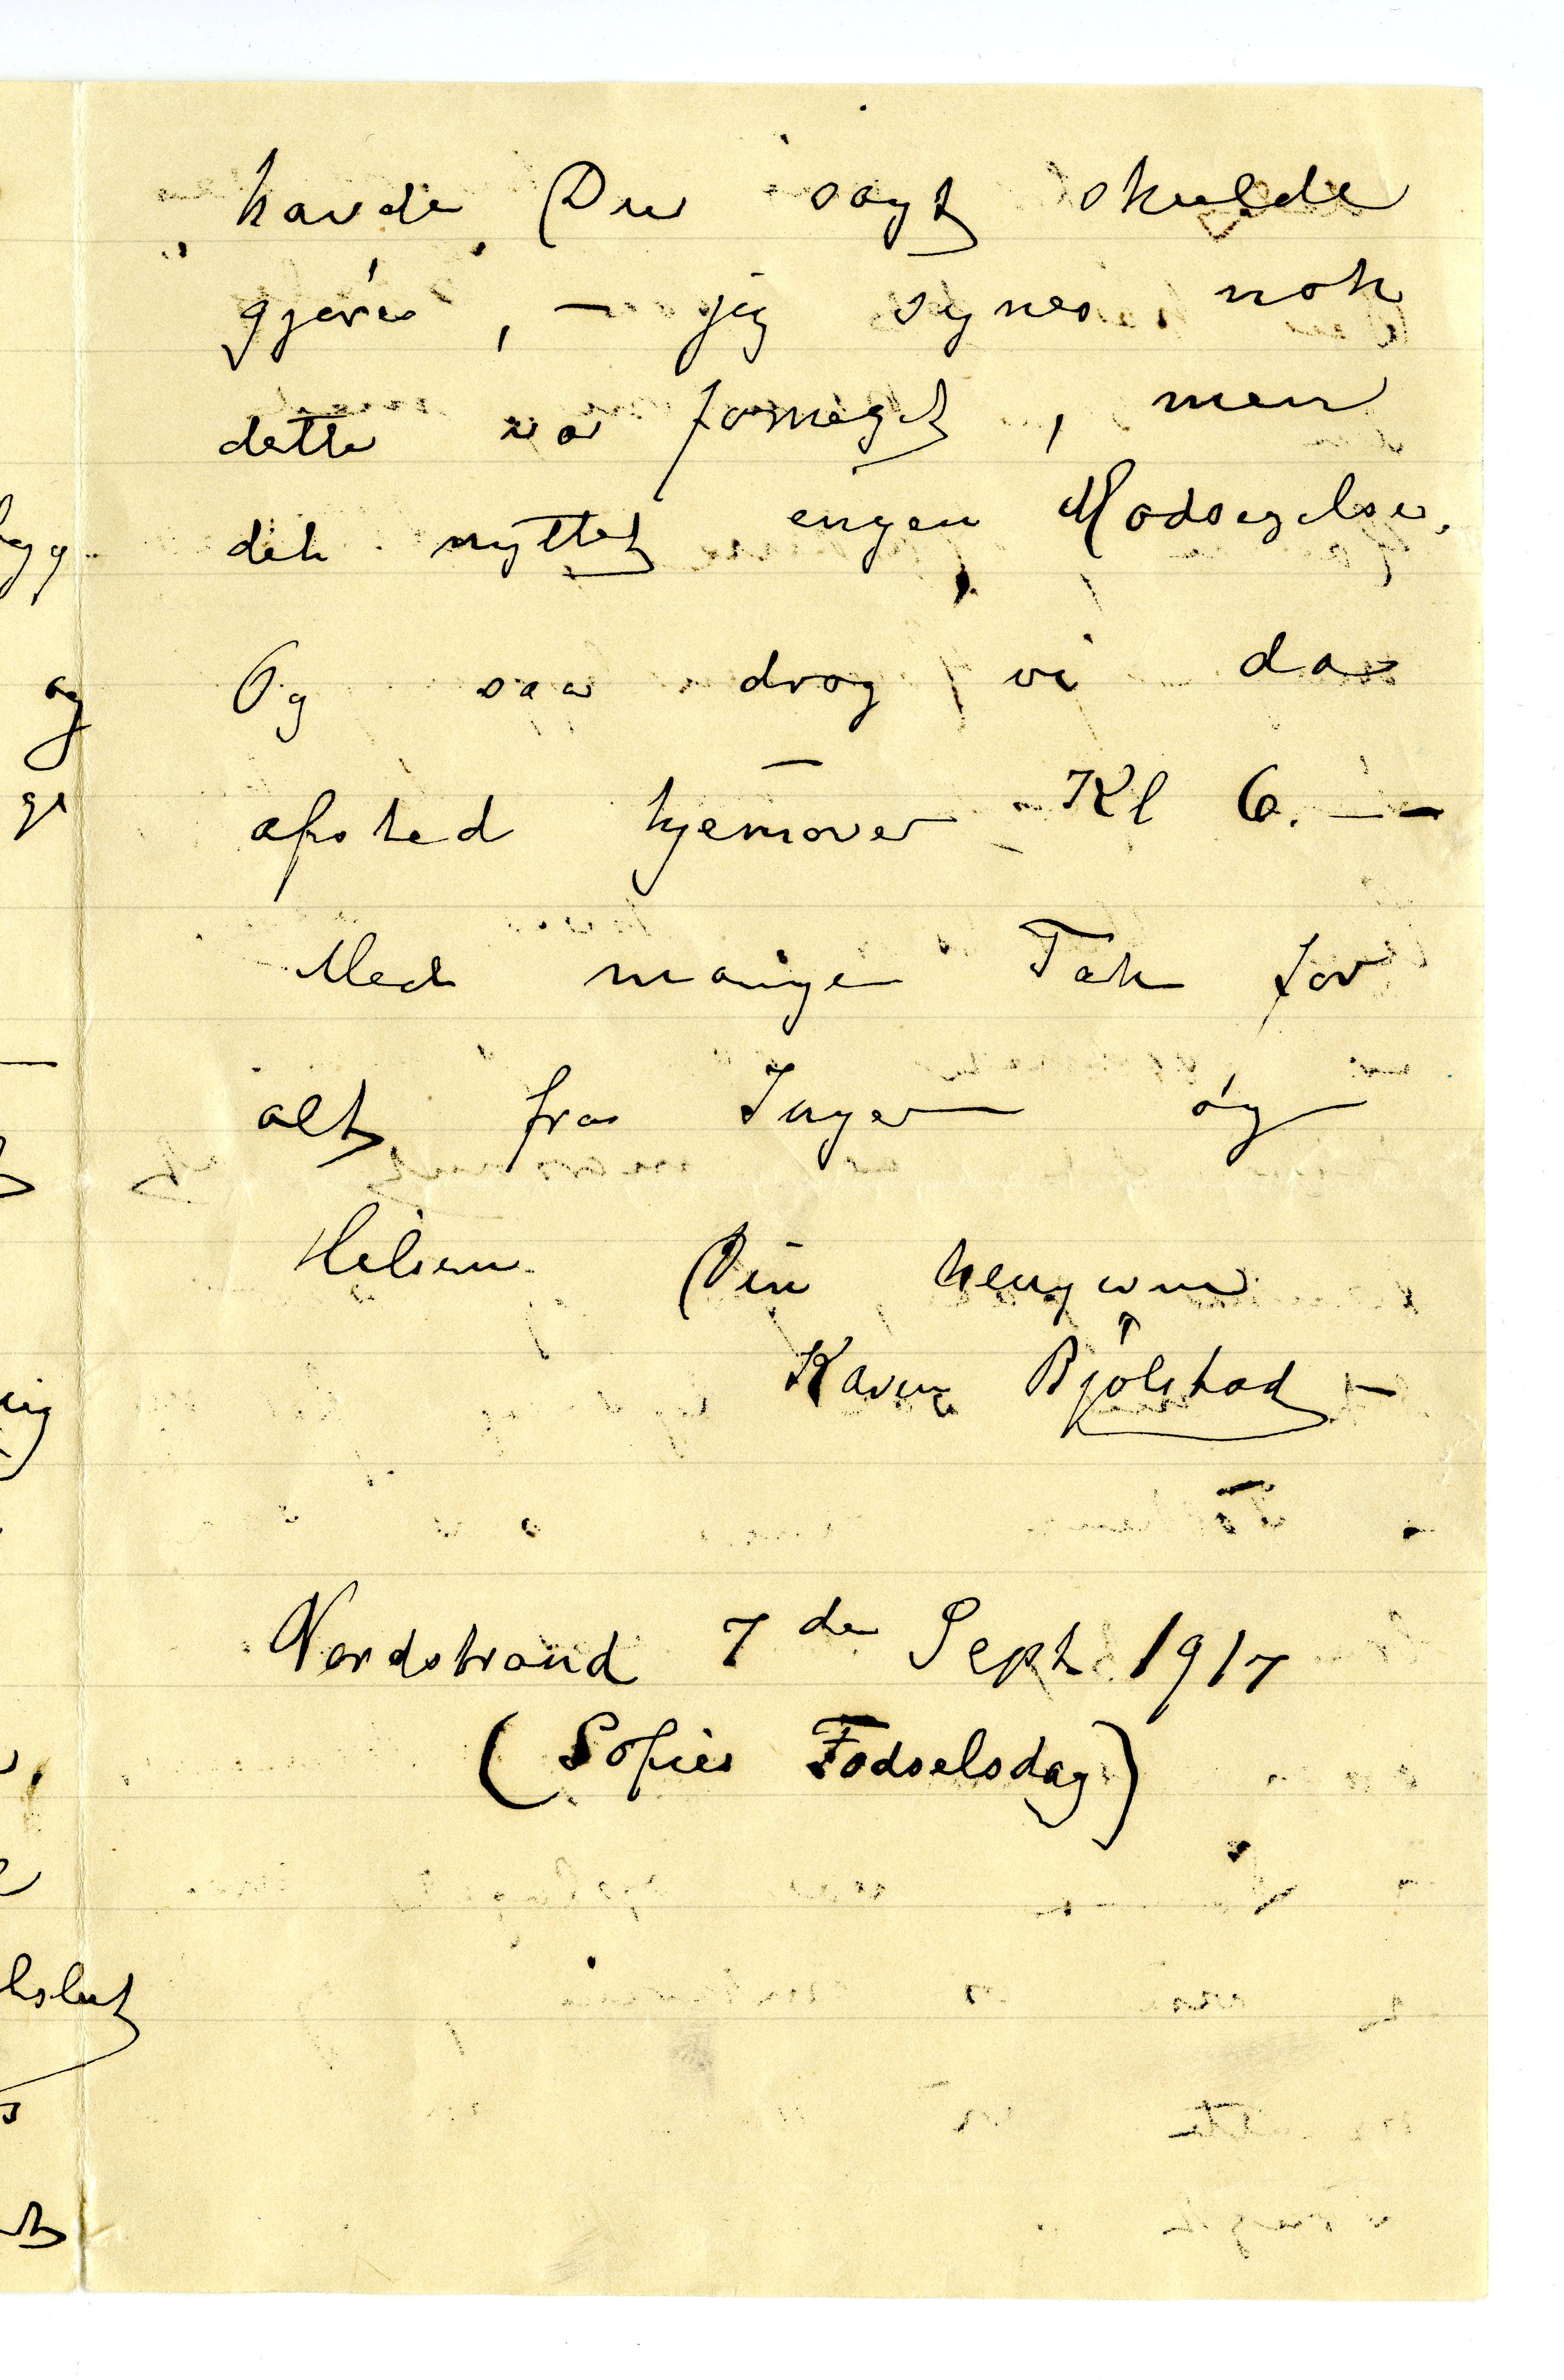 havde Du sagt skulde
gjøres, — jeg synes nok
dette var formeget, men
det nyttet ingen Modsigelse.
Og saa drog vi da
afsted hjemover Kl 6. —
Med mange Tak for
alt fra Inger og
Hilsen Din hengivne
Karen Bjölstad —
Nordstrand 7de Sept 1917
(Sofies Fødselsdag)
og